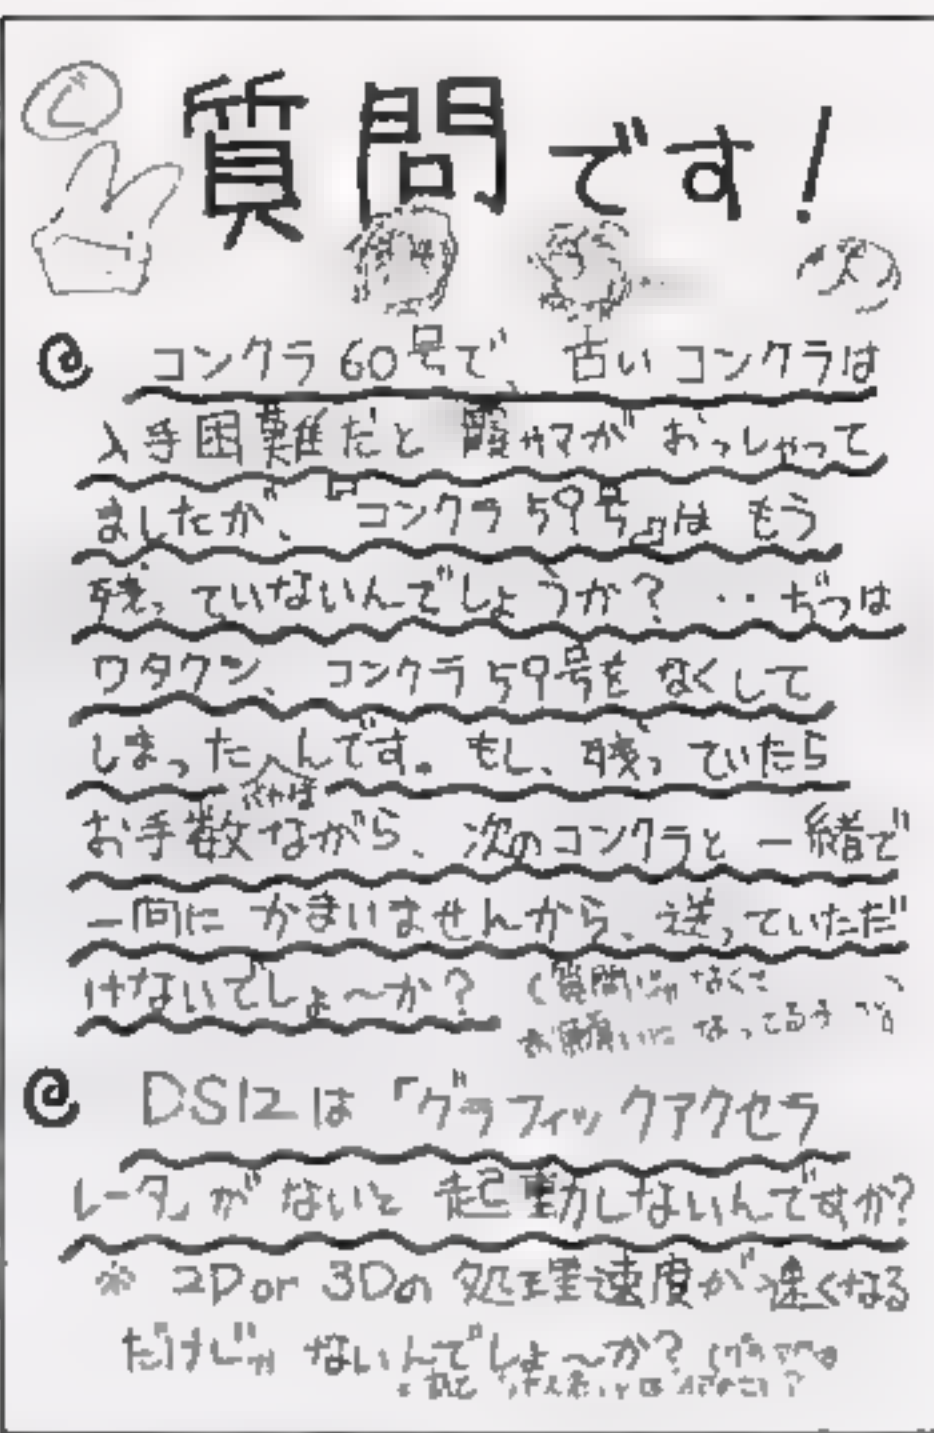 質問です!
@ コンクラ60号で、古いコンクラは
入手困難だと霞ヤマがおっしゃって
ましたが、『コンクラ59号』はもう
残っていないんでしょうか? ‥ぢつは
ワタクシ、コンクラ59号をなくして
しまったんです。もし、残っていたら
お手数ながら、次のコンクラと一緒で
一向にかまいませんから、送っていただ
けないでしょ〜か? (質問じゃなくて
お願いになってるす
@ DS12は「グラフィックアクセラ
レータ」がないと起動しないんですか?
※ 2Dor 3Dの処理速度が速くなる
だけじゃないんでしょ〜か?